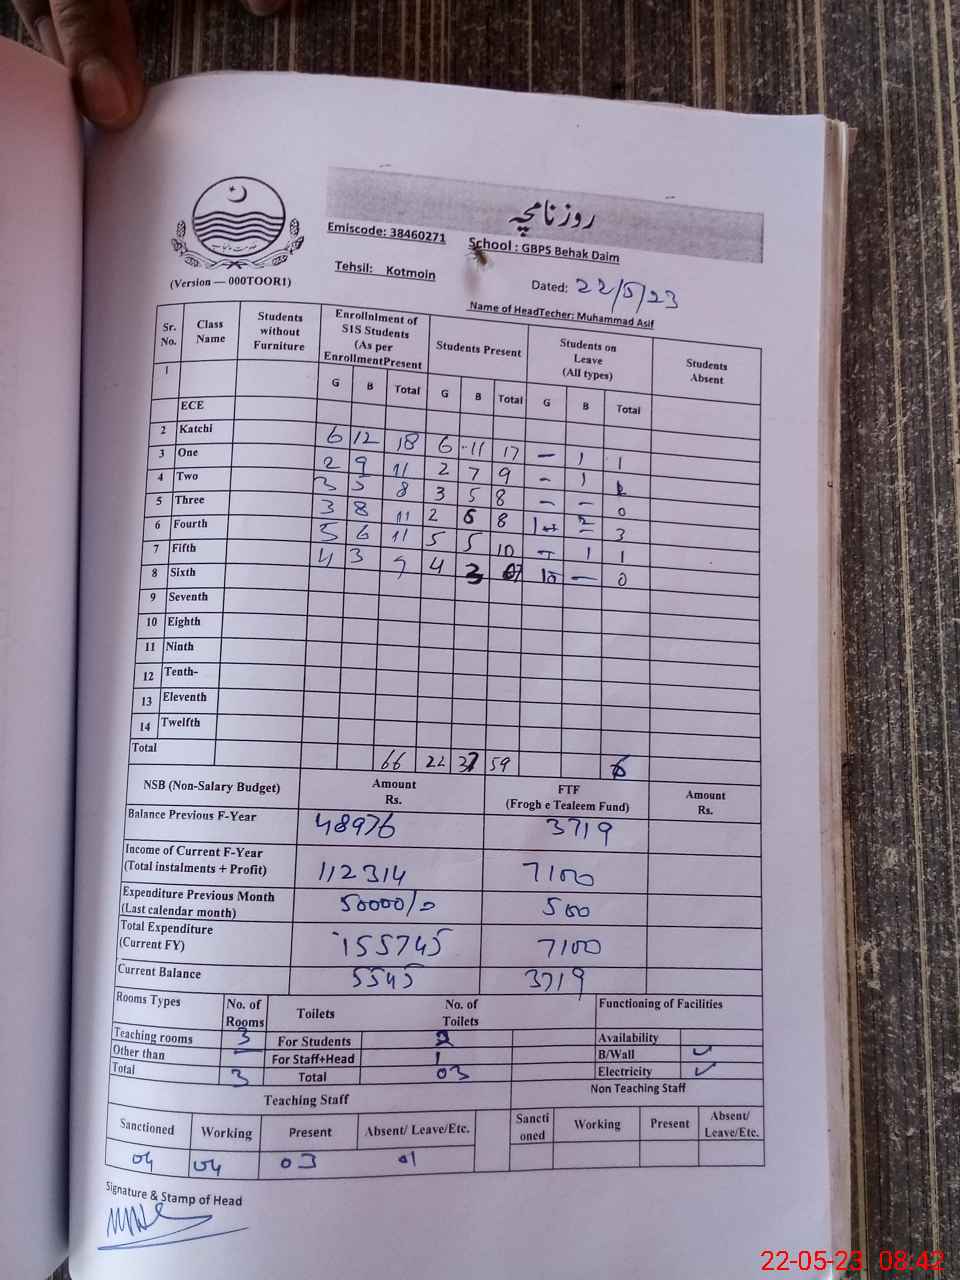 روزنامچہ
Emiscode: 38460271 School : GBPS Behak Daim
(Version — 000TOOR1)
Tehsil: Kotmoin Dated: 22/5/23
Name of HeadTecher: Muhammad Asif
Sr. No. Class Name Students without Furniture Enrollnlment of S1S Students (As per EnrollmentPresent Students Present Students on Leave (All types) Students Absent
1 G B Total G B Total G B Total
ECE
2 Katchi 6 12 18 6 11 17 — 1 1
3 One 2 9 11 2 7 9 - 1
4 Two 3 5 8 3 5 8 - - 0
5 Three 3 8 11 2 6 8 3
6 Fourth 5 6 11 5 5 10 - 1 1
7 Fifth 4 3 7 4 3 07 — 0
8 Sixth
9 Seventh
10 Eighth
11 Ninth
12 Tenth-
13 Eleventh
14 Twelfth
Total 66 22 37 59 6
NSB (Non-Salary Budget) Amount Rs. FTF (Frogh e Tealeem Fund) Amount Rs.
Balance Previous F-Year 48976 3719
Income of Current F-Year (Total instalments + Profit) 112314 7100
Expenditure Previous Month (Last calendar month) 50000/0 500
Total Expenditure (Current FY) 155745 7100
Current Balance 5545 3719
Rooms Types No. of Rooms Toilets No. of Toilets Functioning of Facilities
Teaching rooms 3 For Students 2 Availability
Other than — For Staff+Head 1 B/Wall ✓
Total 3 Total 03 Electricity ✓
Teaching Staff Non Teaching Staff
Sanctioned Working Present Absent/ Leave/Etc. Sancti oned Working Present Absent/ Leave/Etc.
04 04 03 01
Signature & Stamp of Head
22-05-23 08:42